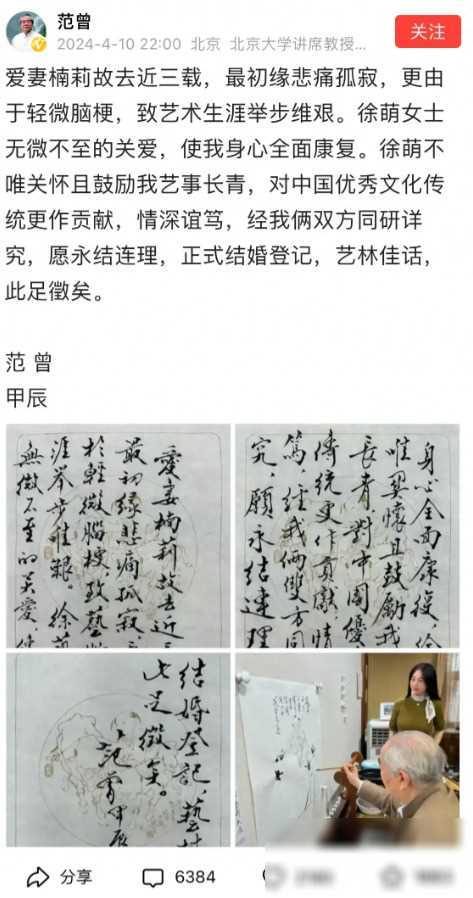 范曾
关注
2024-4-10 22:00 北京 北京大学讲席教授...
爱妻楠莉故去近三载，最初缘悲痛孤寂，更由
于轻微脑梗，致艺术生涯举步维艰。徐萌女士
无微不至的关爱，使我身心全面康复。徐萌不
唯关怀且鼓励我艺事长青，对中国优秀文化传
统更作贡献，情深谊笃，经我俩双方同研详
究，愿永结连理，正式结婚登记，艺林佳话，
此足徵矣。
范 曾
甲辰
愛妻楠莉故去近三
最初緣悲痛孤寂，
於輕微腦梗，致藝
涯舉步維艱。徐萌
無微不至的关愛，使
身心全面康復，徐
唯関懷且鼓勵我
長青，對中國優
傳統更作貢獻，情
篤，經我俩雙方同
究，願永结連理
结婚登記，藝林
此足徵矣。
范曾甲辰
分享
6384